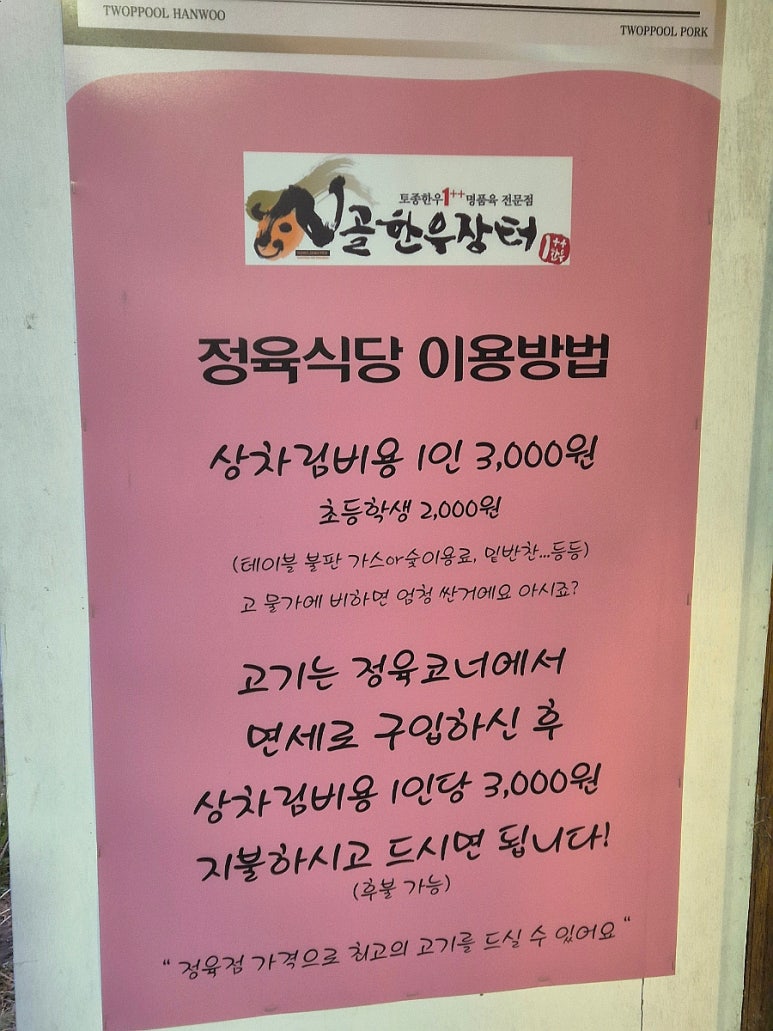 TWOPPOOL HANWOO
TWOPPOOL PORK
토종한우1++명품육 전문점
시골한우장터
1++
한우
정육식당 이용방법
상차림비용 1인 3,000원
초등학생 2,000원
(테이블 불판 가스or숯이용료, 밑반찬...등등)
고 물가에 비하면 엄청 싼거에요 아시죠?
고기는 정육코너에서
면세로 구입하신 후
상차림비용 1인당 3,000원
지불하시고 드시면 됩니다!
(후불 가능)
"정육점 가격으로 최고의 고기를 드실 수 있어요"